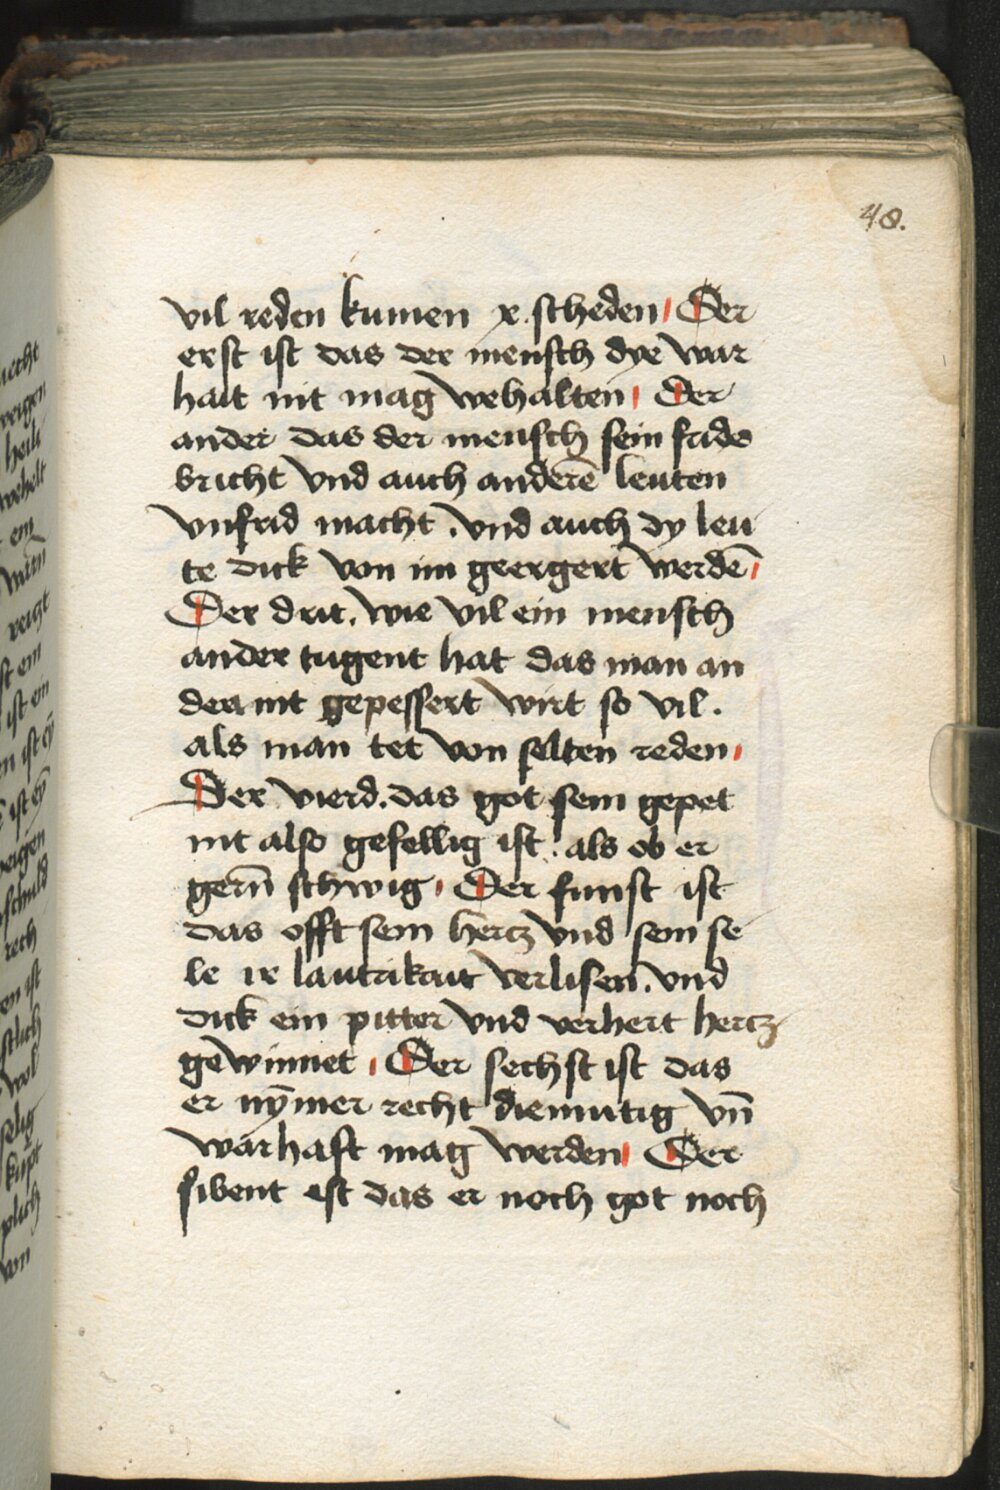 48.
vil reden kumen x scheden Der
erst ist das der mensch dye war
hait nit mag wehalten Der
ander das der mensch sein fride
bricht vnd auch anderē leuten
vnfrid macht . vnd auch dy leu
te dick von im geergert werdē
Der drit . wie vil ein mensch
ander tugent hat das man an
der nit gepessert wirt so vil .
als man tet von selten reden
Der vierd . das got sein gepet
nit also gefellig ist . als ob er
gern̄ schwig Der funft ist
das offt sein hercz vnd sein se
le ir lautrikait verlisen . vnd
dick ein pitter vnd verhert hercz
gewinnet Der sechst ist das
er nȳmer recht diemutig vn̄
warhaft mag werden Der
sibent ist das er noch got noch